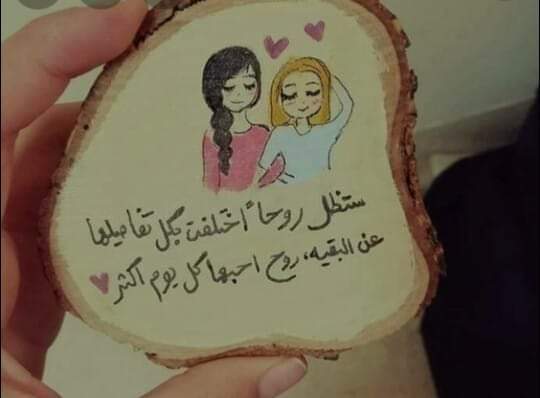 ستظل روحاً اختلفت بكل تفاصيلها
عن البقيه، روح احبها كل يوم اكثر